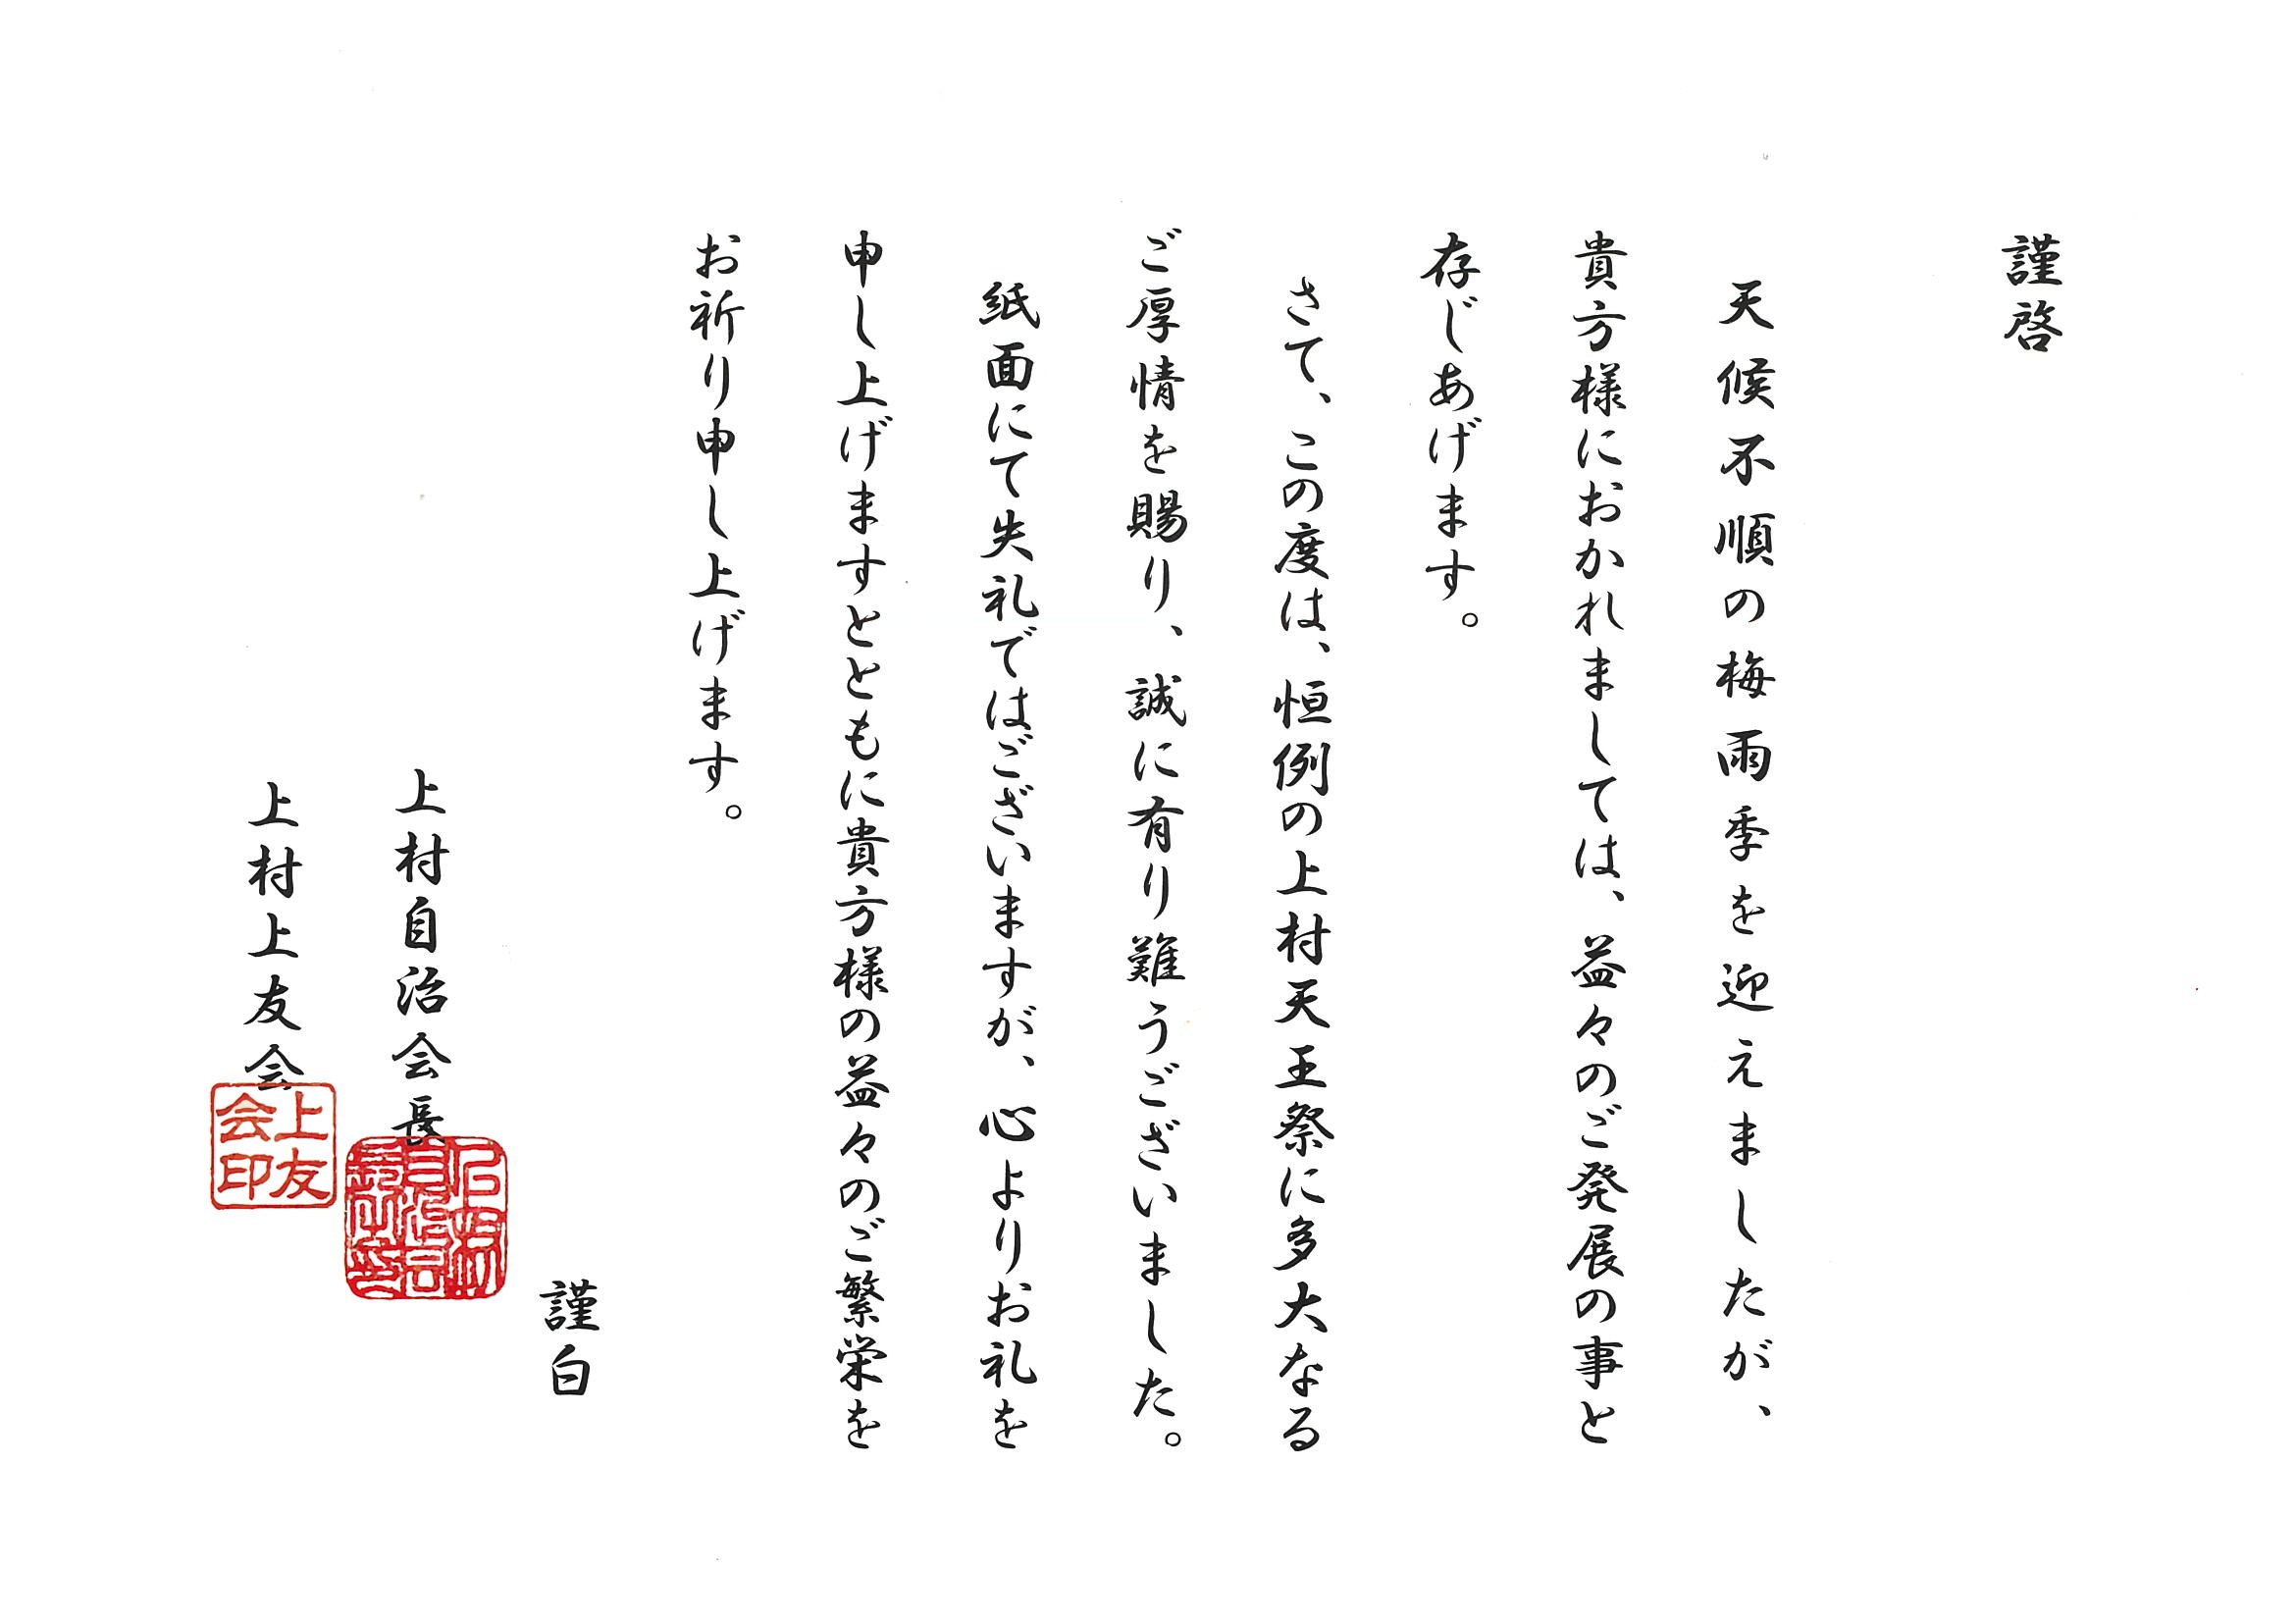 謹啓
天候不順の梅雨季を迎えましたが、
貴方様におかれましては、益々のご発展の事と
存じあげます。
さて、この度は、恒例の上村天王祭に多大なる
ご厚情を賜り、誠に有り難うございました。
紙面にて失礼ではございますが、心よりお礼を
申し上げますとともに貴方様の益々のご繁栄を
お祈り申し上げます。
謹白
上村自治会長
上村上友会
上友
会印